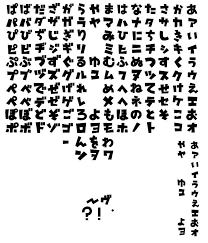 あアいイうウえエおオ
かカきキくクけケこコ
さサしシすスせセそソ
たタちチつツてテとト
なナにニぬヌねネのノ
はハひヒふフへヘほホ
まマみミむムめメもモわワ
やヤ ゆユ よヨをヲ
らラりリるルれレろロんン
がガぎギぐグげゲごゴ
ざザじジずズぜゼぞゾ
だダぢヂづヅでデどド
ばバびビぶブべベぼボ
ぱパぴピぷプぺペぽポ
ぁァぃィぅゥぇェぉォ
ゃャ ゅュ ょョ
〜ヴ
?!